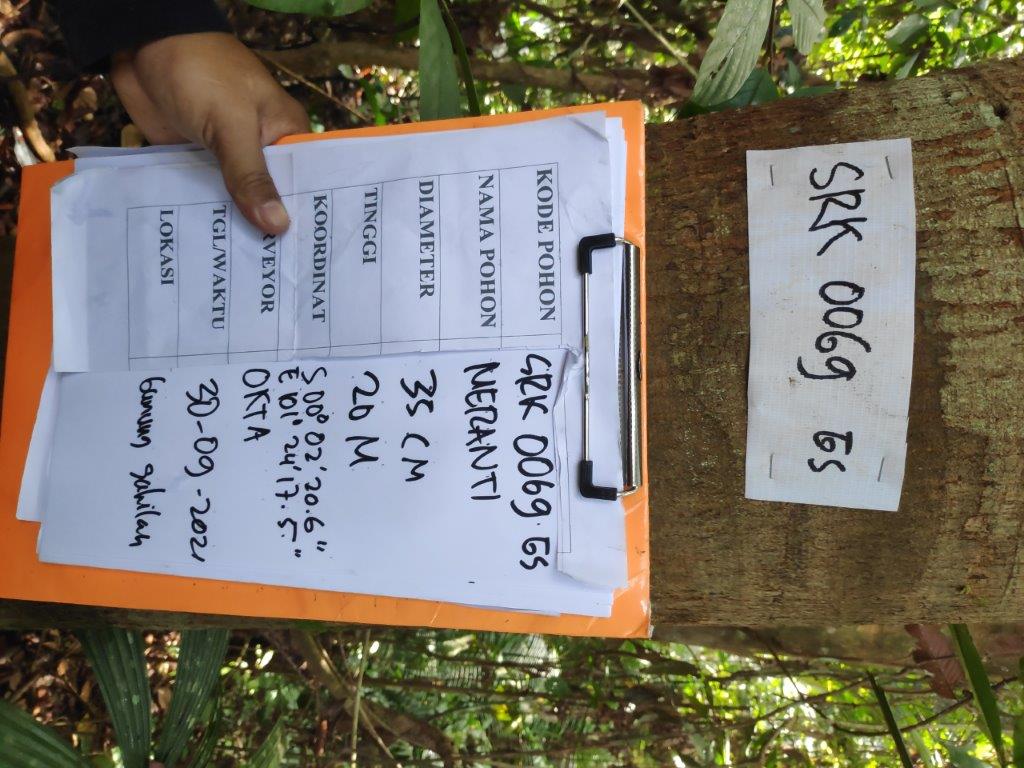 KODE POHON SRK 0069 GS
NAMA POHON MERANTI
DIAMETER 35 CM
TINGGI 20 M
KOORDINAT S 00° 02' 20.6"
E 101' 24' 17.5"
VEYOR OKTA
TGL/WAKTU 30-09-2021
LOKASI Gunung Sahilan
SRK 0069 GS